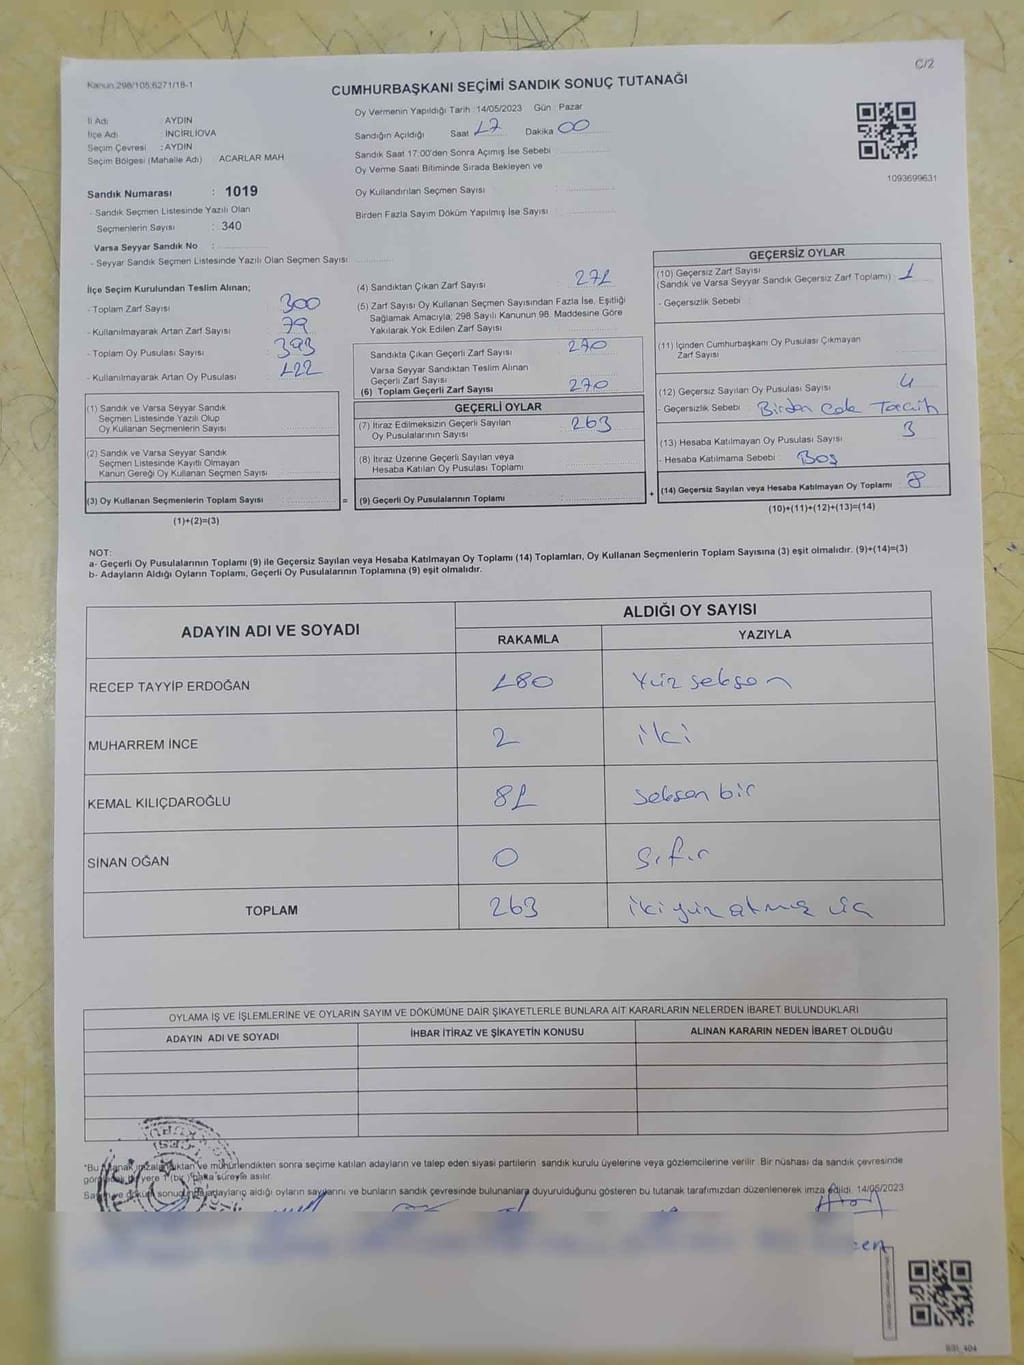 C/2
Kanun:298/105;6271/18-1
CUMHURBAŞKANI SEÇİMİ SANDIK SONUÇ TUTANAĞI
İl Adı : AYDIN
İlçe Adı : İNCİRLİOVA
Seçim Çevresi : AYDIN
Seçim Bölgesi (Mahalle Adı) : ACARLAR MAH
Sandık Numarası : 1019
- Sandık Seçmen Listesinde Yazılı Olan
Seçmenlerin Sayısı : 340
Varsa Seyyar Sandık No :
- Seyyar Sandık Seçmen Listesinde Yazılı Olan Seçmen Sayısı:
Oy Vermenin Yapıldığı Tarih : 14/05/2023 Gün : Pazar
Sandığın Açıldığı Saat 17 Dakika 00
Sandık Saat 17:00'den Sonra Açımış İse Sebebi :
Oy Verme Saati Bitiminde Sırada Bekleyen ve
Oy Kullandırılan Seçmen Sayısı :
Birden Fazla Sayım Döküm Yapılmış İse Sayısı :
1093699631
İlçe Seçim Kurulundan Teslim Alınan;
- Toplam Zarf Sayısı : 300
- Kullanılmayarak Artan Zarf Sayısı : 79
- Toplam Oy Pusulası Sayısı : 393
- Kullanılmayarak Artan Oy Pusulası : 122
(1) Sandık ve Varsa Seyyar Sandık
Seçmen Listesinde Yazılı Olup
Oy Kullanan Seçmenlerin Sayısı :
(2) Sandık ve Varsa Seyyar Sandık
Seçmen Listesinde Kayıtlı Olmayan
Kanun Gereği Oy Kullanan Seçmen Sayısı :
(3) Oy Kullanan Seçmenlerin Toplam Sayısı : =
(1)+(2)=(3)
(4) Sandıktan Çıkan Zarf Sayısı : 271
(5) Zarf Sayısı Oy Kullanan Seçmen Sayısından Fazla İse, Eşitliği
Sağlamak Amacıyla, 298 Sayılı Kanunun 98. Maddesine Göre
Yakılarak Yok Edilen Zarf Sayısı :
Sandıkta Çıkan Geçerli Zarf Sayısı : 270
Varsa Seyyar Sandıktan Teslim Alınan
Geçerli Zarf Sayısı :
(6) Toplam Geçerli Zarf Sayısı : 270
GEÇERLİ OYLAR
(7) İtiraz Edilmeksizin Geçerli Sayılan : 263
Oy Pusulalarının Sayısı
(8) İtiraz Üzerine Geçerli Sayılan veya
Hesaba Katılan Oy Pusulası Toplamı :
(9) Geçerli Oy Pusulalarının Toplamı : +
GEÇERSİZ OYLAR
(10) Geçersiz Zarf Sayısı
(Sandık ve Varsa Seyyar Sandık Geçersiz Zarf Toplamı) : 1
- Geçersizlik Sebebi :
(11) İçinden Cumhurbaşkanı Oy Pusulası Çıkmayan
Zarf Sayısı :
(12) Geçersiz Sayılan Oy Pusulası Sayısı : 4
- Geçersizlik Sebebi : Birden Çok Tercih
(13) Hesaba Katılmayan Oy Pusulası Sayısı : 3
- Hesaba Katılmama Sebebi : Boş
(14) Geçersiz Sayılan veya Hesaba Katılmayan Oy Toplamı : 8
(10)+(11)+(12)+(13)=(14)
NOT:
a- Geçerli Oy Pusulalarının Toplamı (9) ile Geçersiz Sayılan veya Hesaba Katılmayan Oy Toplamı (14) Toplamları, Oy Kullanan Seçmenlerin Toplam Sayısına (3) eşit olmalıdır. (9)+(14)=(3)
b- Adayların Aldığı Oyların Toplamı, Geçerli Oy Pusulalarının Toplamına (9) eşit olmalıdır.
ADAYIN ADI VE SOYADI
ALDIĞI OY SAYISI
RAKAMLA YAZIYLA
RECEP TAYYİP ERDOĞAN 180 Yüz seksen
MUHARREM İNCE 2 iki
KEMAL KILIÇDAROĞLU 81 seksen bir
SİNAN OĞAN 0 Sıfır
TOPLAM 263 iki yüz atmış üç
OYLAMA İŞ VE İŞLEMLERİNE VE OYLARIN SAYIM VE DÖKÜMÜNE DAİR ŞİKAYETLERLE BUNLARA AİT KARARLARIN NELERDEN İBARET BULUNDUKLARI
ADAYIN ADI VE SOYADI İHBAR İTİRAZ VE ŞİKAYETİN KONUSU ALINAN KARARIN NEDEN İBARET OLDUĞU
*Bu tutanak imzalandıktan ve mühürlendikten sonra seçime katılan adayların ve talep eden siyasi partilerin sandık kurulu üyelerine veya gözlemcilerine verilir. Bir nüshası da sandık çevresinde
görülebilir yere 1 (bir) hafta süreyle asılır.
Sayım ve döküm sonucunda adayların aldığı oyların sayılarını ve bunların sandık çevresinde bulunanlara duyurulduğunu gösteren bu tutanak tarafımızdan düzenlenerek imza edildi. 14/05/2023